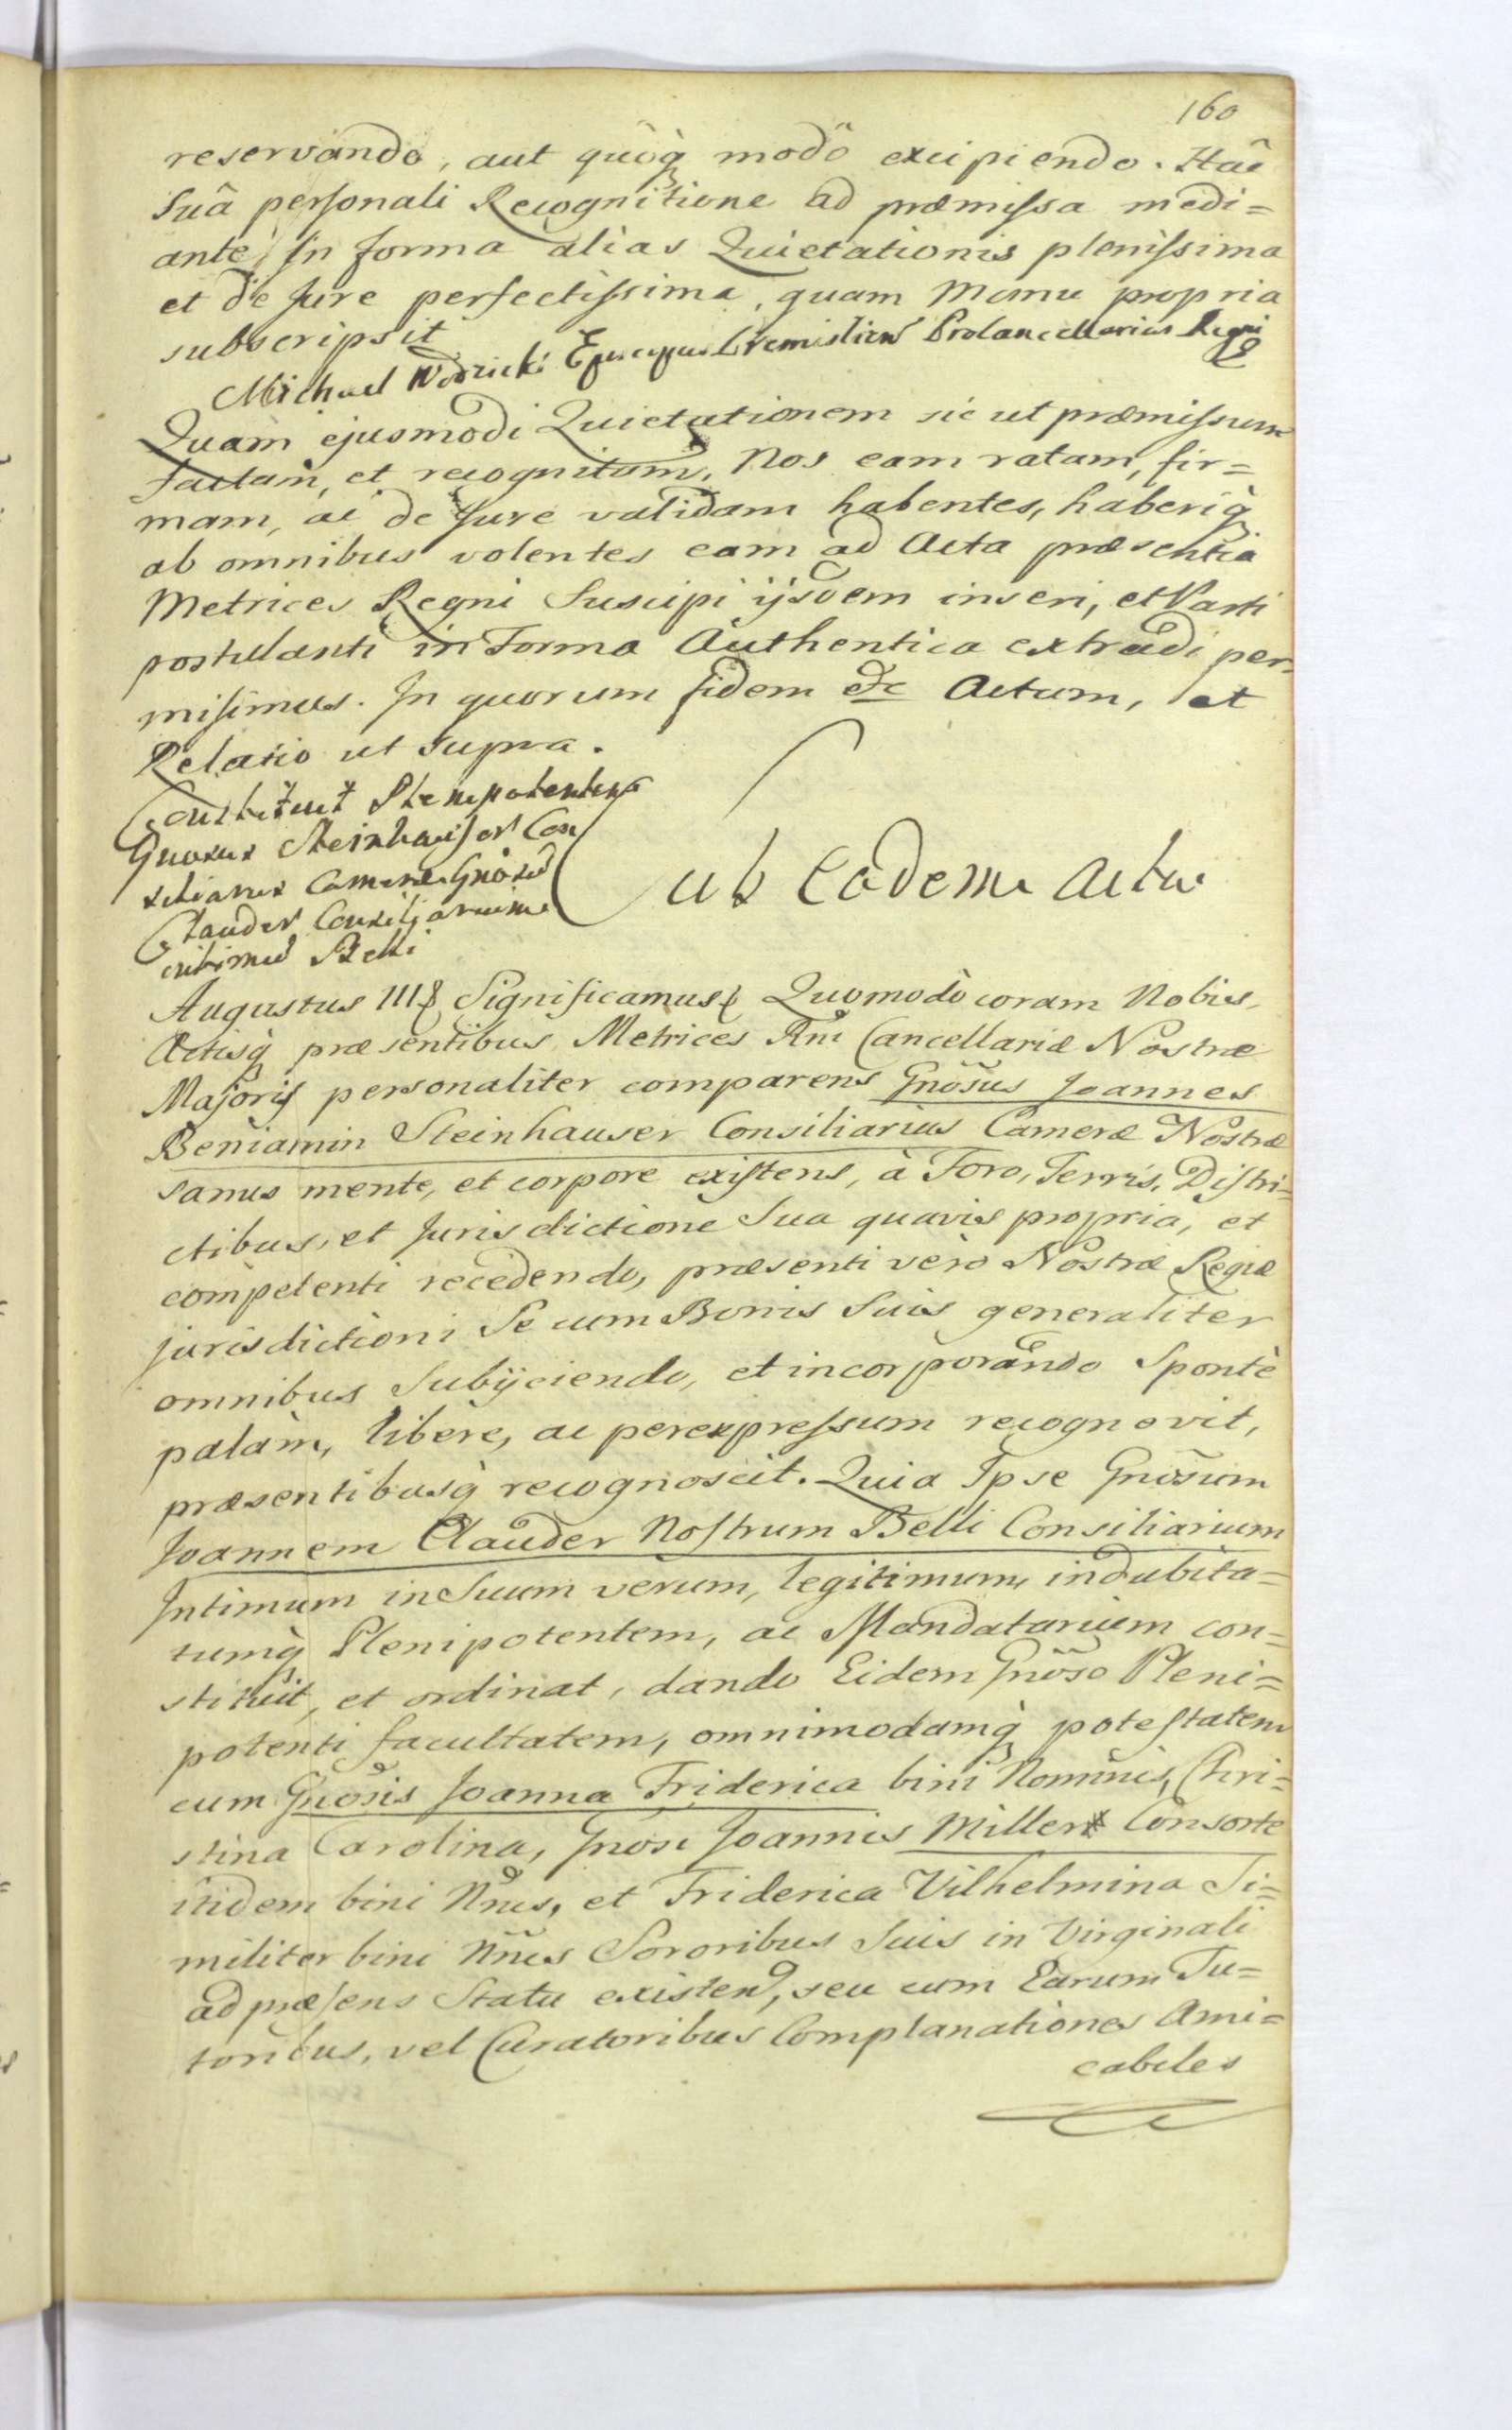 160
reservando, aut quôq; modô excipiendo. Hâc
suâ personali Recognitione ad præmissa medi=
ante, In forma alias Quietationis plenissima
et de Jure perfectissima, quam Manu propria
subscripsit
Michael Wodzicki Episcopus Premislien Procancellarius Regni
Quam ejusmodi Quietationem sic ut præmissum
factam, et recognitam, Nos eam ratam, fir=
mam, ac de Jure validam habentes, haberiq;
ab omnibus volentes eam ad Acta præsentia
Metrices Regni Suscipi ijsdem inseri, et Parti
postulanti in Forma Authentica extradi per=
misimus. In quorum fidem &c Actum, et
Relatio ut supra.
Constituit Plenipotentem
Gnosus Steinhauser Con
siliarius Cameræ Gnosum
Clauder Consiliarium
intimum Belli
Sub Eadem Actu
Augustus III Significamus Quomodò coram Nobis
Actisq; præsentibus Metrices Rni Cancellariæ Nostræ
Majoris personaliter comparens Gnosus Joannes
Beniamin Steinhauser Consiliarius Cameræ Nostræ
sanus mente, et corpore existens, à Foro, Terris, Distri=
ctibus, et Jurisdictione Sua quavis propria, et
competenti recedendo, præsenti verò Nostræ Regiæ
jurisdictioni Se cum Bonis Suis generaliter
omnibus Subijciendo, et incorporando Spontè
palàm, liberè, ac per expressum recognovit,
præsentibusq; recognoscit. Quia Ipse Gnosum
Joannem Clauder Nostrum Belli Consiliarium
Intimum in Suum verum, legitimum, indubita=
tumq; Plenipotentem, ac Mandatarium con=
stituit, et ordinat, dando Eidem Gnoso Pleni=
potenti facultatem, omnimodamq; potestatem
cum Gnosis Joanna Friderica bini Nominis, Chri=
stina Carolina, Gnosi Joannis Miller Consorte
itidem bini Nnis, et Friderica Vilhelmina Si=
militer bini Nnis Sororibus Suis in Virginali
ad præsens Statu existen, seu cum Earum Tu=
toribus, vel Curatoribus Complanationes Ami=
cabiles